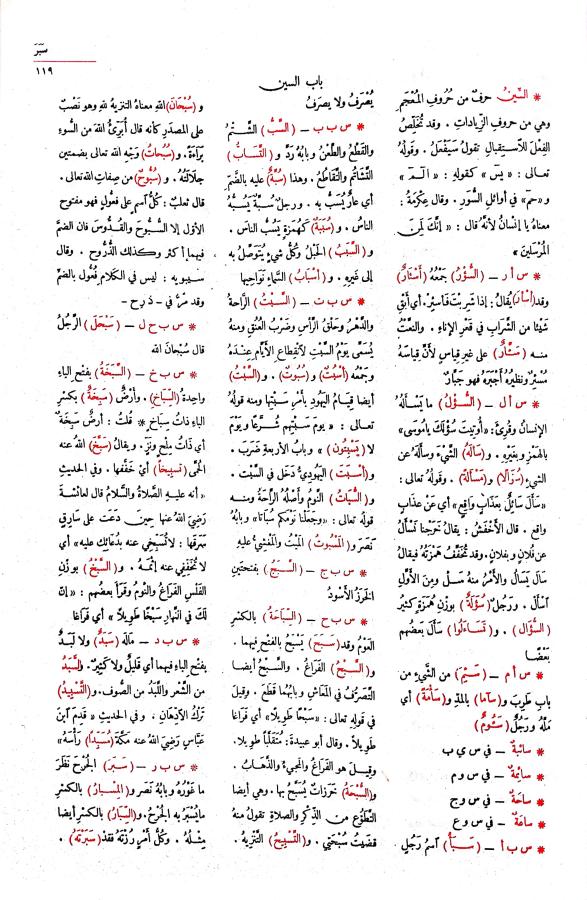 سَبَرَ
١١٩
باب السين
* السِّينُ حرفٌ من حُرُوفِ المُعْجَمِ
وهي من حروفِ الزِّياداتِ . وقد تُخَلِّصُ
الفِعْلَ للاستِقبالِ تقولُ سيَفْعَلُ . وقولُهُ
تعالى : « يس » كقوله : « الم »
و « حم » في أوائلِ السُّوَرِ . وقال عِكْرِمَةُ :
معناهُ يا إنسانُ لأنهُ قال : « إنَّكَ لَمِنَ
المُرْسَلينَ »
* س أ ر – (السُّؤْرُ) جَمْعُهُ (أَسْآرٌ)
وقد (أسْأرَ) يُقالُ : إذا شَرِبْتَ فأسْئِرْ . أي أبْقِ
شيئًا من الشَّرابِ في قَعْرِ الإناءِ . والنَّعْتُ
منه (سَئَّارٌ) على غيرِ قِياسٍ لأنَّ قِياسَهُ
مُسْئِرٌ ونظيرُهُ أجْبَرَهُ فهو جَبَّارٌ
* س أ ل – (السُّؤْلُ) ما يَسْألُهُ
الإنسانُ وقُرِئَ : « أُوتِيتَ سُؤْلَكَ يامُوسَى »
بالهَمْزِ وبغَيْرِهِ . و (سَألَهُ) الشَّيْءَ وسألَهُ عن
الشيءِ (سُؤَالًا) و (مَسْألَةً) . وقولُهُ تعالى :
« سَألَ سَائِلٌ بعَذَابٍ واقِعٍ » أي عن عَذابٍ
واقعٍ . قال الأخْفَشُ : يقالُ خَرَجنا نَسْألُ
عن فُلانٍ وبفلانٍ . وقد تُخَفَّفُ هَمْزَتُهُ فيقالُ
سَالَ يَسَالُ والأمْرُ منهُ سَلْ ومِنَ الأوَّلِ
اسْألْ . ورَجُلٌ (سُؤَلَةٌ) بوزْنِ هُمَزَةٍ كَثيرُ
(السُّؤَال) . و (تَسَاءَلُوا) سَألَ بعضُهم
بَعْضًا
* س أ م – (سَئِمَ) من الشَّيءِ من
بابِ طَرِبَ و (سَآمًا) بالمدِّ و (سَآمَةً) أي
مَلَّهُ ورَجُلٌ (سَئُومٌ)
* سائبةٌ – في س ي ب
* سائِمَةٌ – في س و م
* ساحَةٌ – في س و ح
* ساعَةٌ – في س و ع
* س ب أ – (سَبَأٌ) آسمُ رَجُلٍ
يُصْرَفُ ولا يصرَفُ
* س ب ب – (السَّبُّ) الشَّتْمُ
والقَطْعُ والطَّعْنُ وبابُهُ رَدَّ و (التَّسابُّ)
التَّشاتُمُ والتَّقاطُعُ . وهذا (سُبَّةٌ) عليه بالضَّمِّ
أي عارٌ يُسَبُّ به . ورجلٌ سُبَّةٌ يَسُبُّهُ
الناسُ . و (سُبَبَةٌ) كهُمَزَةٍ يَسُبُّ الناسَ .
و (السَّبَبُ) الحَبْلُ وكُلُّ شيءٍ يُتَوَصَّلُ به
إلى غَيرِهِ . و (أسْبَابُ) السَّماءِ نَواحِيها
* س ب ت – (السَّبْتُ) الرَّاحَةُ
والدَّهْرُ وحَلْقُ الرَّأسِ وضَرْبُ العُنُقِ ومنهُ
يُسَمَّى يَوْمُ السَّبْتِ لانْقِطَاعِ الأيَّامِ عِنْدَهُ
وجَمْعُهُ (أسْبُتٌ) و (سُبُوتٌ) . و (السَّبْتُ)
أيضا قِيَامُ اليَهُودِ بأَمْرِ سَبْتِها ومنهُ قَولُهُ
تعالى : « يومَ سَبْتِهِم شُرَّعًا ويَوْمَ
لا (يَسْبِتُون) » وبابُ الأربعةِ ضَرَبَ .
و (أَسْبَتَ) اليَهُودِيُّ دَخَلَ في السَّبْتِ .
و (السُّبَاتُ) النَّومُ وأصْلُهُ الرَّاحَةُ ومنه
قولُهُ تعالى : «وجَعَلْنا نَوْمَكُم سُبَاتًا» وبابُهُ
نَصَرَ و (المَسْبُوتُ) المَيِّتُ والمَغْشِيُّ عليه
* س ب ج – (السَّبَجُ) بفتحتينِ
الخَرَزُ الأسْوَدُ
* س ب ح – (السِّبَاحَةُ) بالكسْرِ
العَوْمُ وقد (سَبَحَ) يَسْبَحُ بالفتح فيهما .
و (السَّبْحُ) الفَراغُ . والسَّبْحُ أيضا
التَّصَرُّفُ في المَعَاشِ وبابُهُما قَطَعَ . وقيلَ
في قولِهِ تعالى : «سَبْحًا طويلًا» أي فَراغًا
طويلًا . وقال أبو عبيدةَ : مُنْقَلَبًا طويلا .
وقيل هو الفَراغُ والمجيءُ والذَّهابُ .
و (السُّبْحَةُ) خَرَزاتٌ يُسَبَّحُ بها . وهي أيضا
التَّطَوُّعُ من الذِّكْرِ والصلاةِ تقولُ منهُ
قَضَيْتُ سُبْحَتي . و (التَّسْبِيحُ) التَّنْزِيهُ .
و (سُبْحَانَ) اللهِ معناهُ التنزيهُ للهِ وهو نَصْبٌ
على المصدَرِ كأنه قال أُبَرِّئُ اللهَ من السُّوءِ
براءةً . و (سُبُحاتُ) وجْهِ الله تعالى بضمتين
جلالَتُهُ . و (سُبُّوحٌ) من صِفاتِ اللهِ تعالى .
قال ثعلبٌ : كُلُّ آسمٍ على فَعُّولٍ فهو مفتوحُ
الأولِ إلا السُّبُّوحَ والقُدُّوسَ فان الضمَّ
فيهما أكثرُ وكذلك الذُّرُّوحُ . وقال
سيبويه : ليس في الكلامِ فُعُّولٌ بالضمِّ
وقد مَرَّ في – ذ ر ح –
* س ب ح ل – (سَبْحَلَ) الرَّجُلُ
قال سُبْحانَ اللهِ
* س ب خ – (السَّبَخَةُ) بفتحِ الباءِ
واحدةُ (السِّبَاخ) . وأرضٌ (سَبِخَةٌ) بكسْرِ
الباءِ ذاتُ سِباخٍ * قُلتُ : أرضٌ سَبِخَةٌ
أي ذاتُ مِلْحٍ ونَزٍّ . ويقالُ (سَبَّخَ) اللهُ عنه
الحُمَّى (تسبيخًا) أيْ خَفَّفَها . وفي الحديثِ
« أنه عليهِ الصَّلاةُ والسَّلامُ قال لعائشةَ
رَضِيَ اللهُ عنها حِينَ دَعَتْ على سَارِقٍ
سَرَقَها : لاتُسَبِّخِي عنه بدُعَائِكِ عليه » أي
لا تُخَفِّفِي عنه إثْمَهُ . و (السَّبْخُ) بوزْنِ
الفَلْسِ الفَراغُ والنَّومُ وقرأ بعضُهم : « إنَّ
لَكَ في النَّهارِ سَبْخًا طويلًا » أي فَراغًا
* س ب د – مالَهُ (سَبَدٌ) ولا لَبَدٌ
بفتحِ الباءِ فيهما أي قليلٌ ولا كثيرٌ . و (السَّبَدُ)
من الشَّعْرِ واللَّبَدُ من الصُّوفِ . و (التَّسْبِيدُ)
تَرْكُ الادِّهانِ . وفي الحديث « قَدِمَ آبنُ
عبَّاسٍ رَضِيَ اللهُ عنه مَكَّةَ (مُسَبِّدًا) رأسَهُ »
* س ب ر – (سَبَرَ) الجُرْحَ نَظَرَ
ما غَوْرُهُ وبابُهُ نَصَرَ و (المِسْبارُ) بالكسْرِ
مايُسْبَرُ به الجُرْحُ . و (السِّبَارُ) بالكسْرِ أيضا
مِثْلُهُ . وكُلُّ أمْرٍ رُزْتَهُ فقد (سَبَرْتَهُ) .